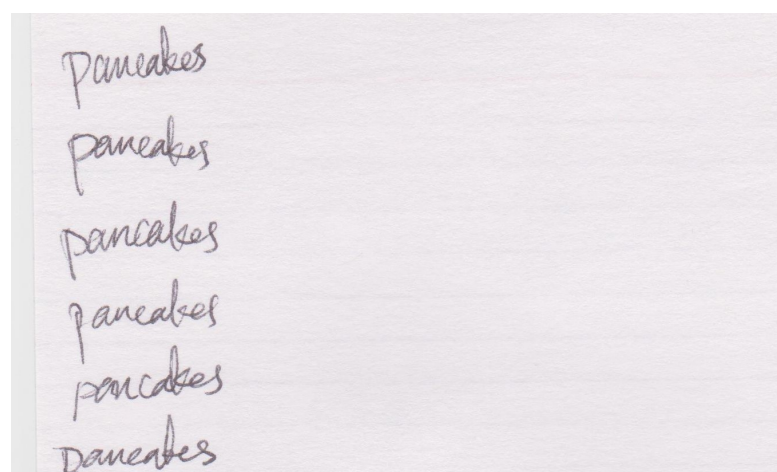 pancakes
pancakes
pancakes
pancakes
pancakes
pancakes